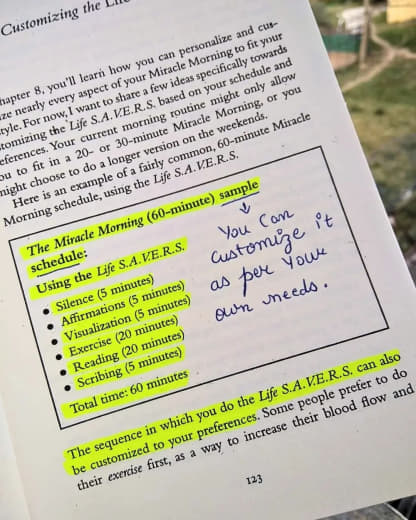 Customizing the
hapter 8, you'll learn how you can personalize and cus-
ze nearly every aspect of your Miracle Morning to fit your
tyle. For now, I want to share a few ideas specifically towards
tomizing the Life S.A.V.E.R.S. based on your schedule and
eferences. Your current morning routine might only allow
ou to fit in a 20- or 30-minute Miracle Morning, or you
might choose to do a longer version on the weekends.
Here is an example of a fairly common, 60-minute Miracle
Morning schedule, using the Life S.A.V.E.R.S.
The Miracle Morning (60-minute) sample
schedule:
Using the Life S.A.V.E.R.S.
• Silence (5 minutes)
• Affirmations (5 minutes)
• Visualization (5 minutes)
• Exercise (20 minutes)
• Reading (20 minutes)
• Scribing (5 minutes)
Total time: 60 minutes
You Can
customize it
as per your
own needs.
The sequence in which you do the Life S.A.V.E.R.S. can also
be customized to your preferences. Some people prefer to do
their exercise first, as a way to increase their blood flow and
123